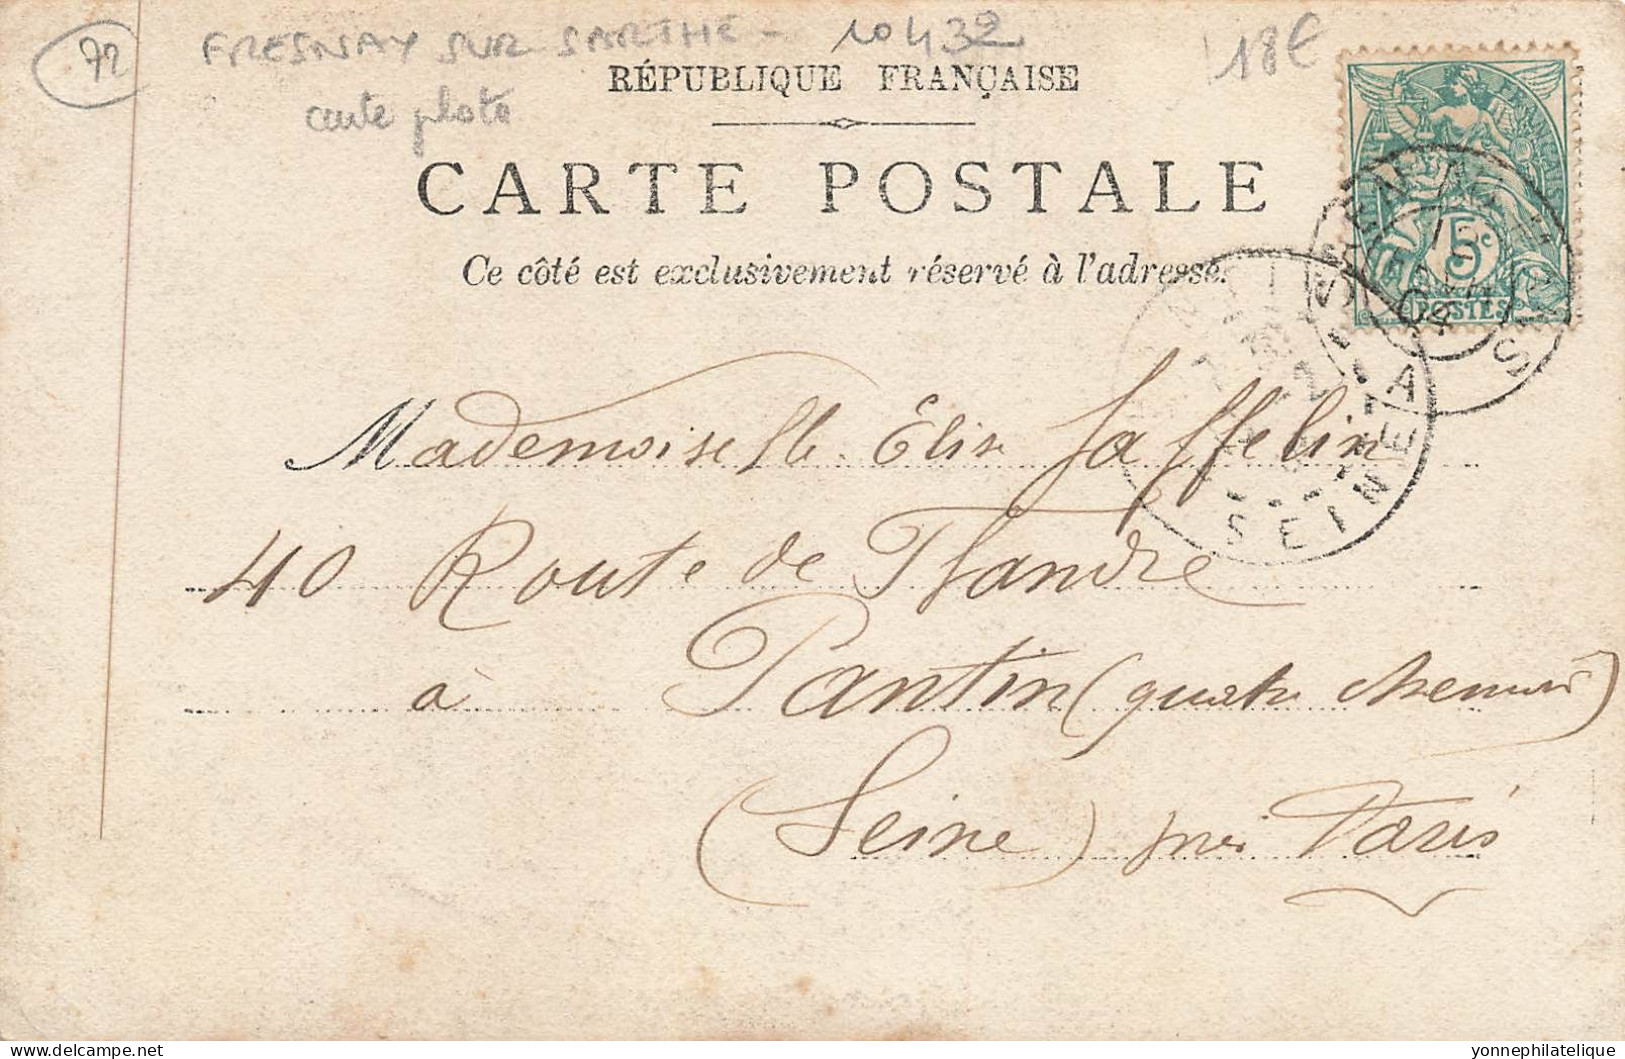 72
FRESNAY SUR SARTHE - 10432
18€
carte photo
RÉPUBLIQUE FRANÇAISE
CARTE POSTALE
Ce côté est exclusivement réservé à l'adresse.
5c
POSTES
SEINE
Mademoiselle Elise Jaffelin
40 Route de Flandre
à Pantin (quatre chemins)
(Seine) près Paris
yonnephilatelie